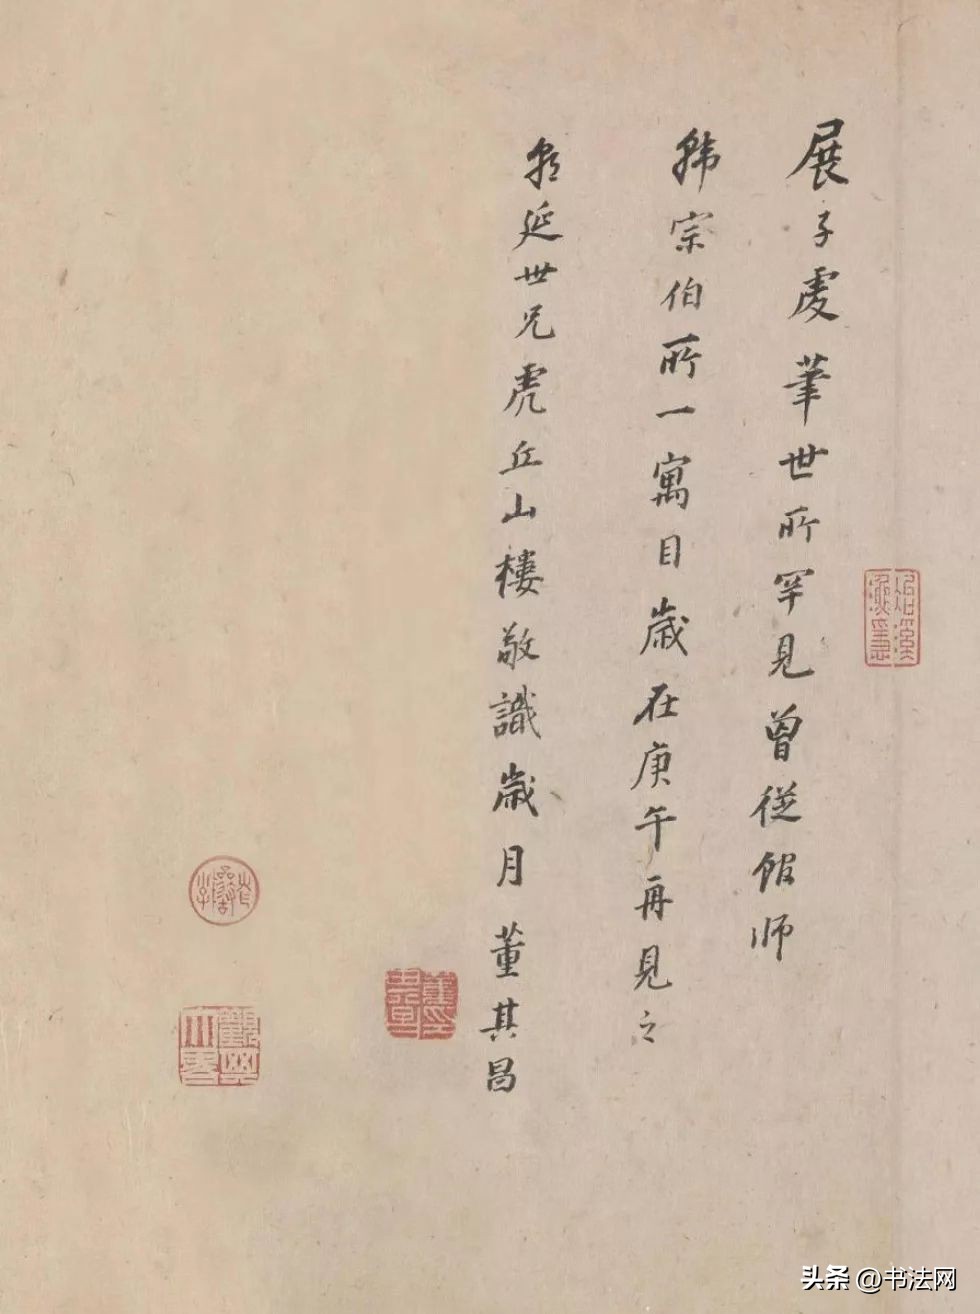 展子虔筆世所罕見曾從館師
韩宗伯所一寓目歲在庚午再見之
朝延世兄虎丘山樓敬識歲月董其昌
头条 @书法网